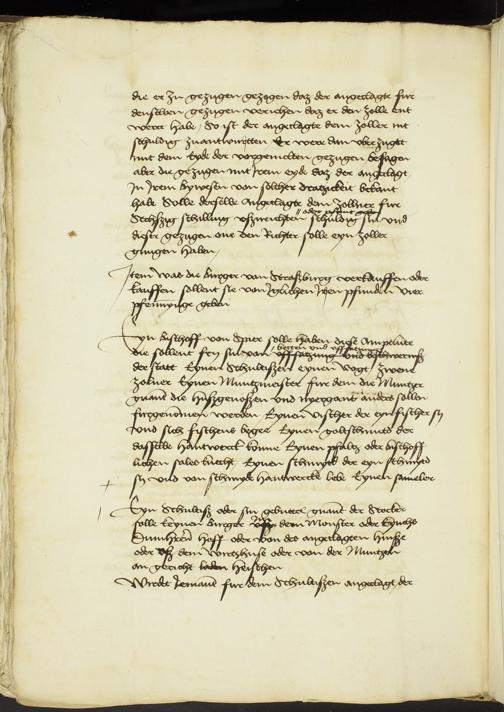 die er zu gezugen gezogen daz der angeclagte fur
denselben gezugen verichen daz er den zolle ent
wert habe / So ist der angeclagte dem zoller nit
schuldig zuantwurtten Er were dan uberzugt
mit dem eyde der vorgemelten gezugen Besagen
aber die gezugen mit Irem eyde daz der angeclagt
In Irem bywesen von solicher bekant
habe Solle derselbe angeclagte dem zollner fure
Sechszig schilling uszurichten schuldig sin und
dieser gezugen one den Richter solle eyn zoller
gnugen haben
Item Was die burger von Straßburg verkauffen oder
kauffen sollent sie von pfunden vier
pfennynge geben
Eyn Bischoff von Spier solle haben diese Ampelute
die sollent fry sin von betten und
der Statt Eynen Schultiszen eynen vogt zwene
zolner Eynen Muntzmeister fur dem die Muntzer
gnant die huszgenoszen und nyergant anders sollen
furgenomen werden Eynen vischer der eyn fischer sy
und sich fischens bege Eynen goltschmidt der
dasselbe hantwerck konne Eynen pfaltz oder bischoff
lichen Eynen schmydt der eyn schmydt
sy und von schmydt hantwercke lebe Eynen sameler
Eyn Schultisz oder sin gebuttere gnant der Stocker
solle keynen burger usz dem Monster oder
Dumherrn hoff oder von des angeclagten husze
oder usz dem wirtzhuse oder von der Muntzen
an gericht heischen
Wirdet Jemant fur dem Schultiszen angeclagt der